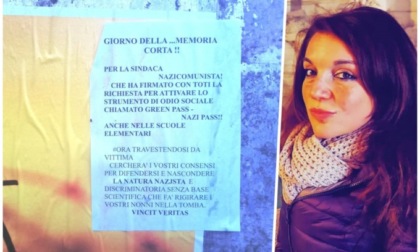 GIORNO DELLA ...MEMORIA
CORTA !!
PER LA SINDACA
NAZICOMUNISTA!
CHE HA FIRMATO CON TOTI LA
RICHIESTA PER ATTIVARE LO
STRUMENTO DI ODIO SOCIALE
CHIAMATO GREEN PASS -
NAZI PASS!!
ANCHE NELLE SCUOLE
ELEMENTARI
#ORA TRAVESTENDOSI DA
VITTIMA
CERCHERA' I VOSTRI CONSENSI
PER DIFENDERSI E NASCONDERE:
LA NATURA NAZISTA, E
DISCRIMINATORIA SENZA BASE
SCIENTIFICA CHE FA' RIGIRARE I
VOSTRI NONNI NELLA TOMBA.
VINCIT VERITAS